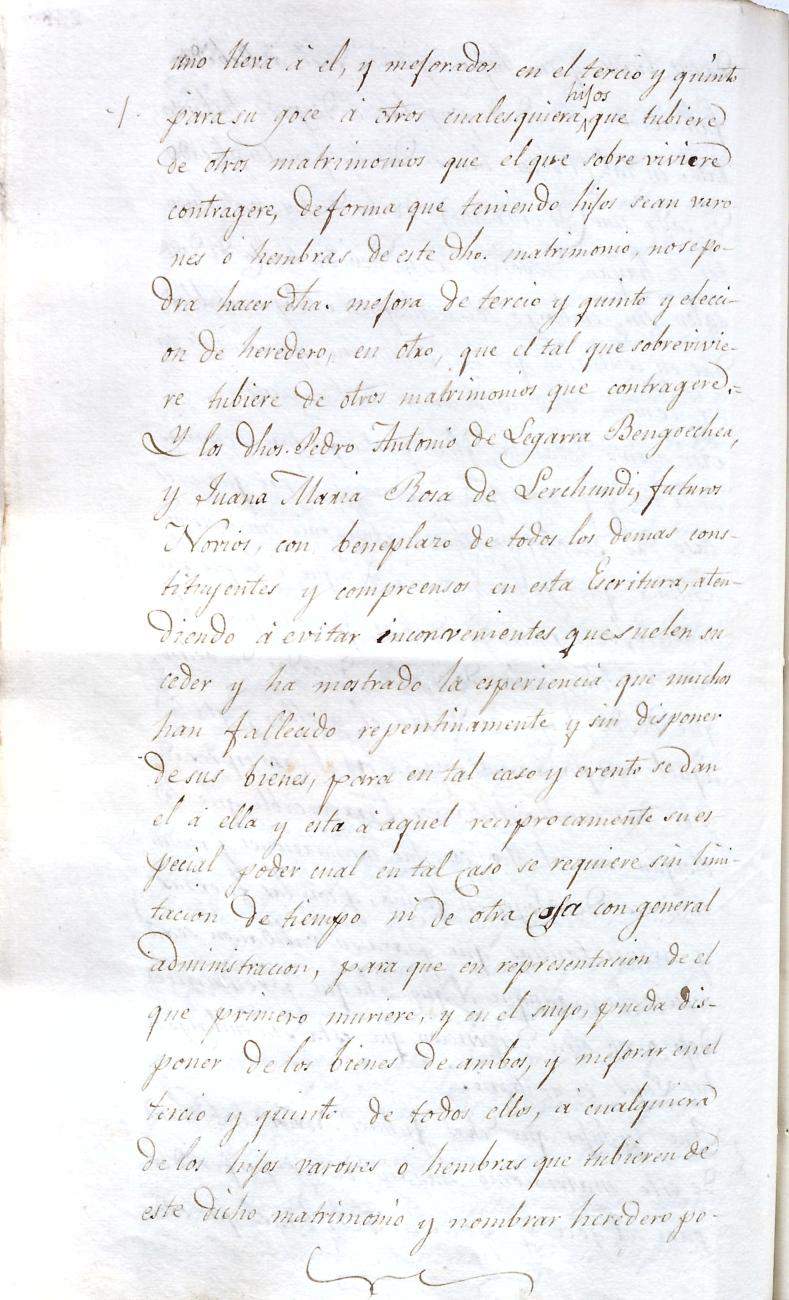 uno lleva á el, y mejorados en el tercio y quinto
hijos
para su goce á otros cualesquiera que tubiere
de otros matrimonios que el que sobre viviere
contragere, deforma que teniendo hijos sean varo
nes ó hembras de este dho. matrimonio, nosepo-
dra hacer dha. mejora de tercio y quinto y elecci-
on de heredero, en otro, que el tal que sobrevivie-
re tubiere de otros matrimonios que contragere.=
Y los dhos. Pedro Antonio de Legarra Bengoechea,
y Juana Maria Rosa de Lerchundi, futuros
Novios, con beneplazo de todos los demas cons-
tituyentes y compreensos en esta Escritura, aten-
diendo á evitar inconvenientes que suelen su
ceder y ha mostrado la esperiencia que muchos
han fallecido repentinamente y sin disponer
de sus bienes, para en tal caso y evento se dan
el á ella y esta á aquel reciprocamente su es
pecial poder cual en tal caso se requiere sin limi-
tacion de tiempo ni de otra cosa con general
administracion, para que en representacion de el
que primero muriere, y en el suyo, pueda dis-
poner de los bienes de ambos, y mejorar en el
tercio y quinto de todos ellos, á cualquiera
de los hijos varones ó hembras que tubieren de
este dicho matrimonio y nombrar heredero po-